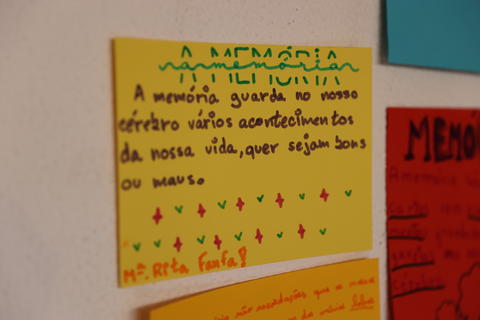 A MEMÓRIA
a memória
A memória guarda no nosso
cérebro vários acontecimentos
da nossa vida, quer sejam bons
ou maus.
Mª. Rita Fanfa!
MEMÓ
A memória
não recordações que a